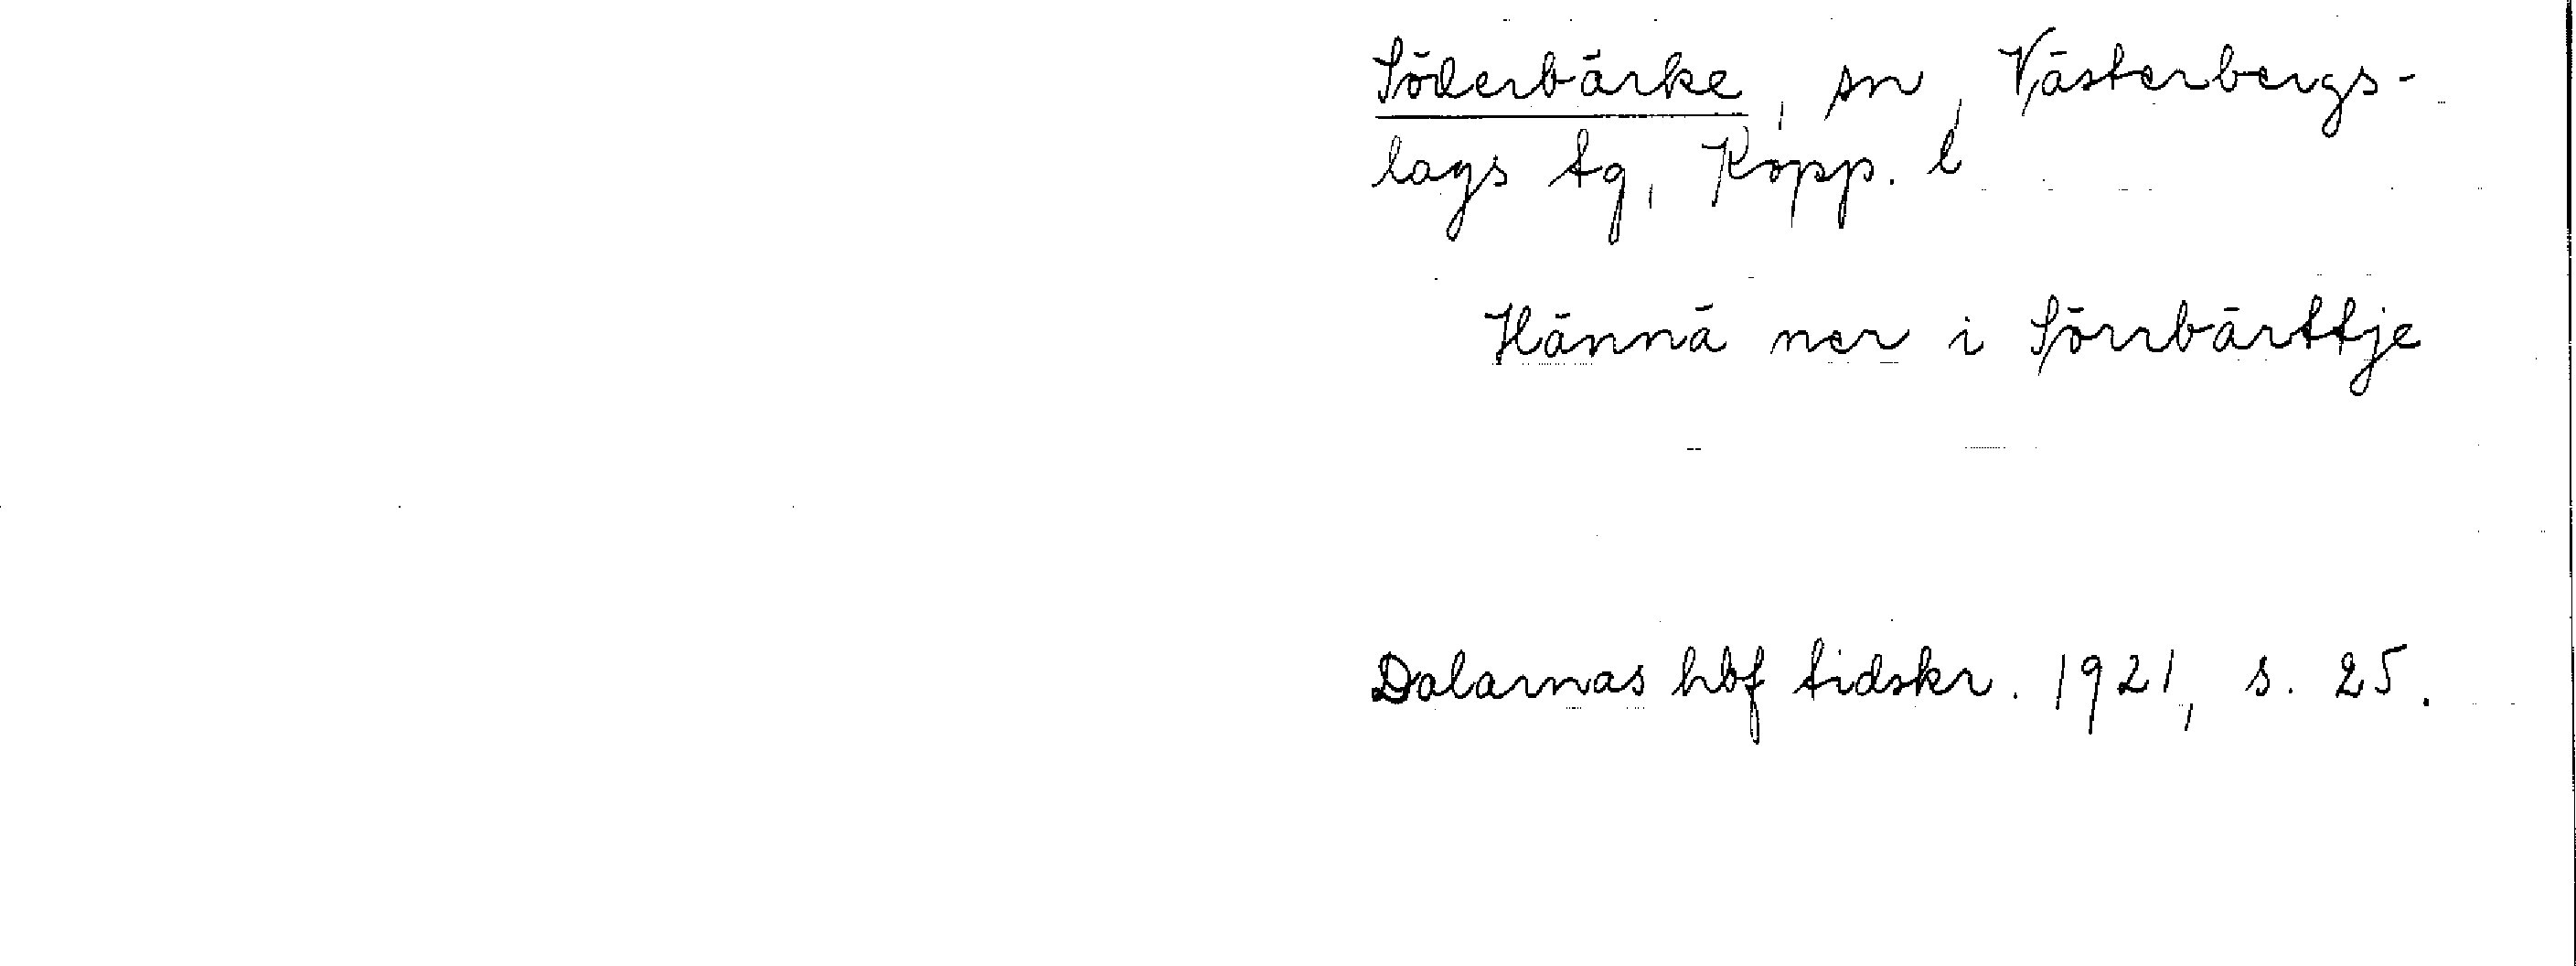 Söderbärke, sn, Västerbergs-
lags tg, Kopp. l
Hännä ner i Sörrbärttje
Dalarnas hbf tidskr. 1921, s. 25.